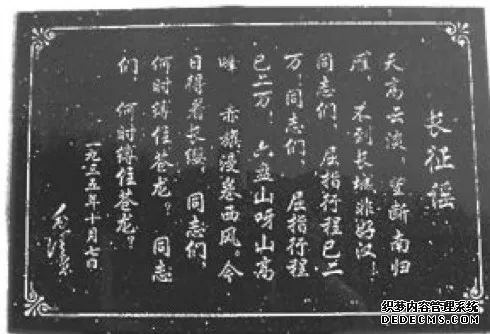 长征谣
天高云淡，望断南归
雁，不到长城非好汉！
同志们，屈指行程已二
万！同志们，屈指行程
已二万！六盘山呀山高
峰 赤旗漫卷西风。今
日得着长缨，同志们，
何时缚住苍龙？同志
们，何时缚住苍龙？
一九三五年十月七日
毛泽东
织梦内容管理系统
DEDECMS.COM